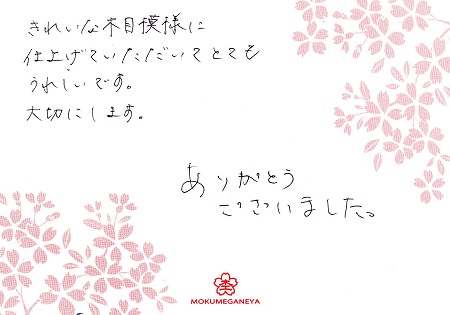 きれいな木目模様に
仕上げていただいてとても
うれしいです。
大切にします。
ありがとう
ございました。
MOKUMEGANEYA